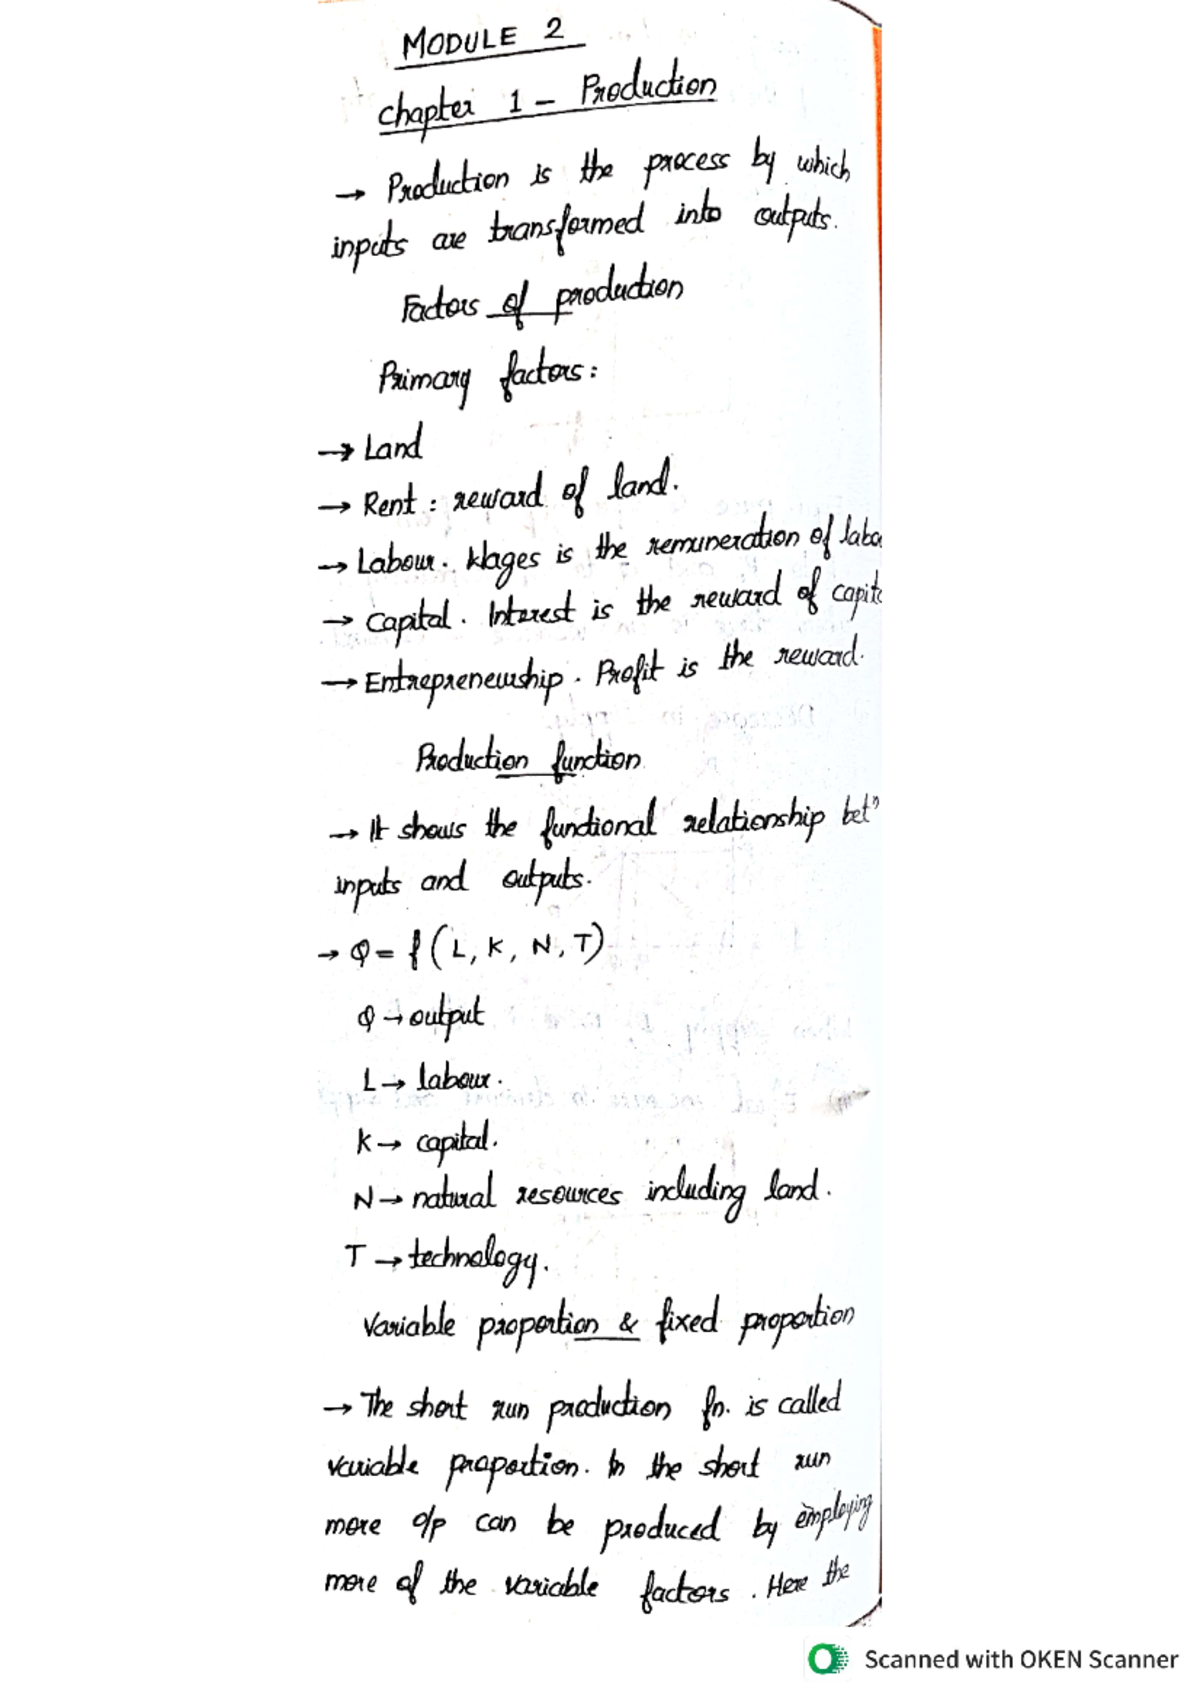 MODULE 2
Chapter 1 - Production
→ Production is the process by which
inputs are transformed into outputs.
Factors of production
Primary factors:
→ Land
→ Rent : reward of land.
→ Labour. Wages is the remuneration of labo
→ Capital. Interest is the reward of capit
→ Entrepreneurship. Profit is the reward.
Production function
→ It shows the functional relationship betn
inputs and outputs.
→ Q = f (L, K, N, T)
Q → output
L → labour.
K → capital.
N → natural resources including land.
T → technology.
Variable proportion & fixed proportion
→ The short run production fn. is called
variable proportion. In the short run
more o/p can be produced by employing
more of the variable factors. Here the
Scanned with OKEN Scanner